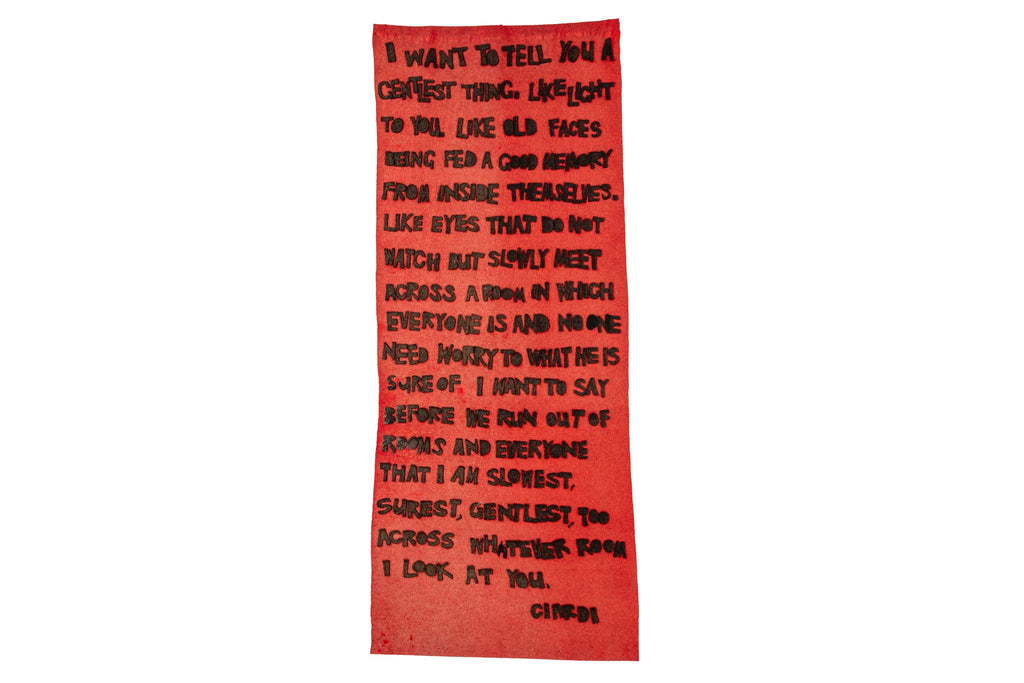 I WANT TO TELL YOU A
GENTLEST THING. LIKE LIGHT
TO YOU. LIKE OLD FACES
BEING FED A GOOD MEMORY
FROM INSIDE THEMSELVES.
LIKE EYES THAT DO NOT
WATCH BUT SLOWLY MEET
ACROSS A ROOM IN WHICH
EVERYONE IS AND NO ONE
NEED WORRY TO WHAT HE IS
SURE OF. I WANT TO SAY
BEFORE WE RUN OUT OF
ROOMS AND EVERYONE
THAT I AM SLOWEST,
SUREST, GENTLEST, TOO
ACROSS WHATEVER ROOM
I LOOK AT YOU.
CIARDI